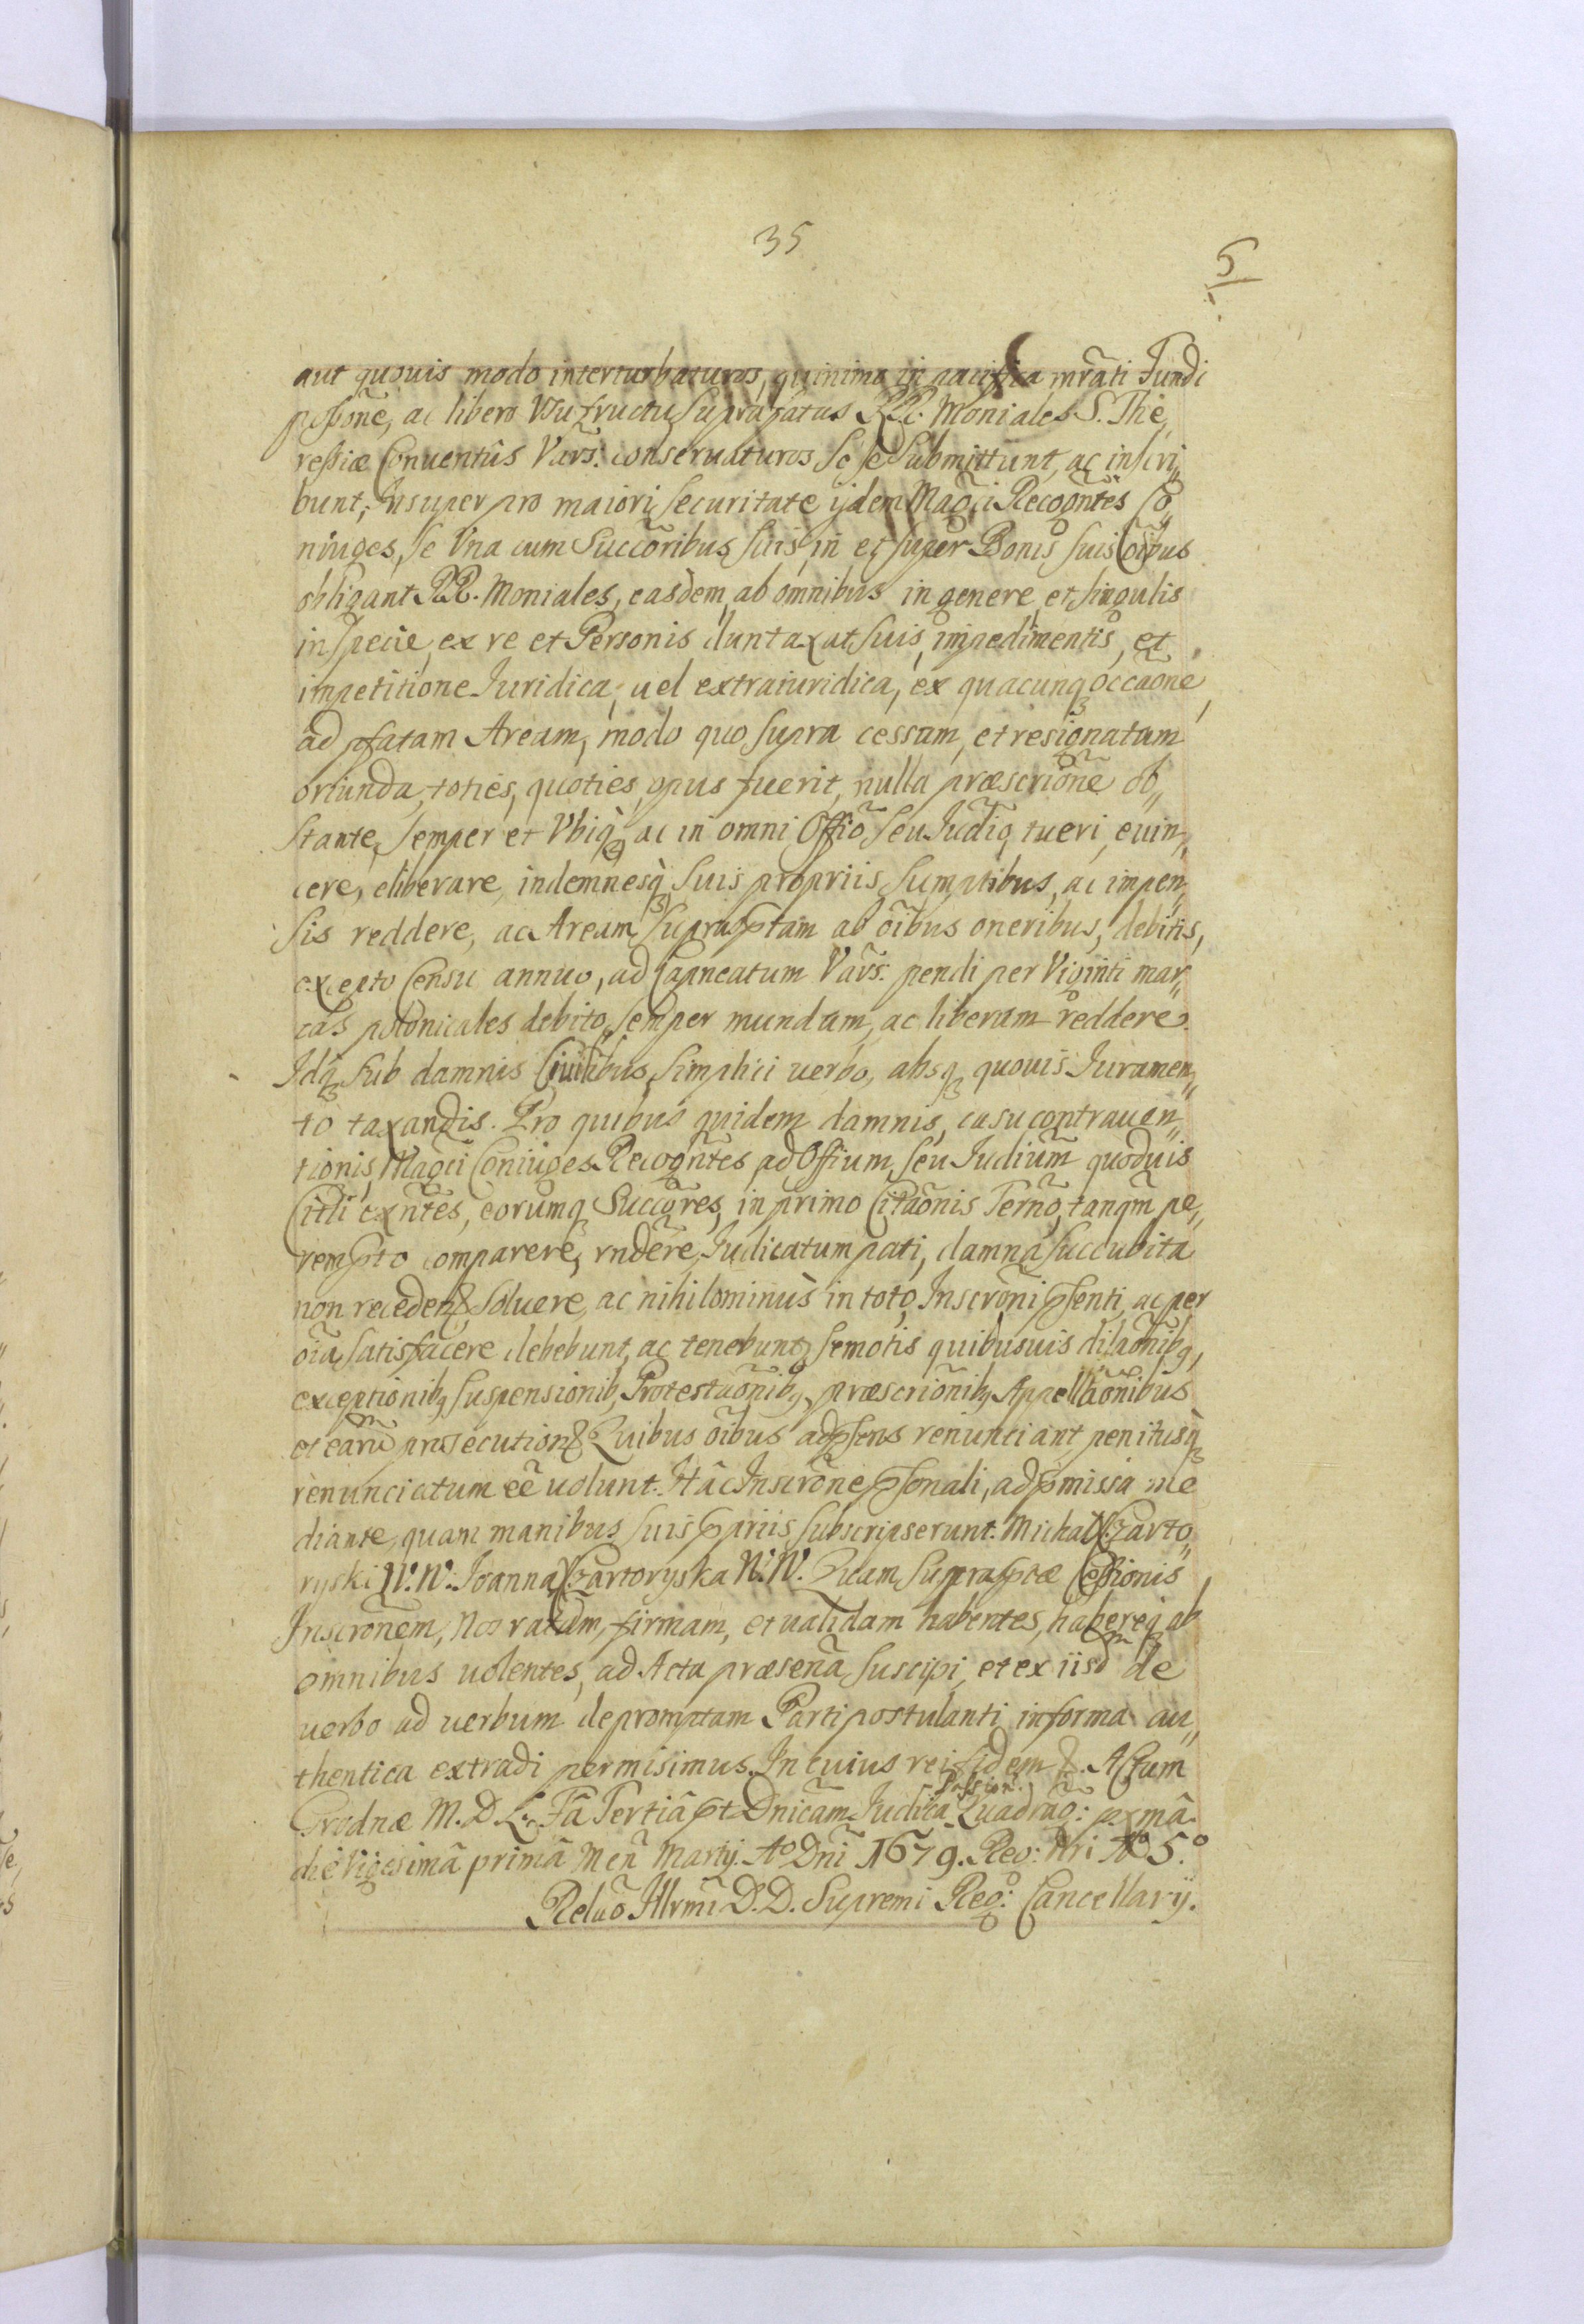 35
5
aut quouis modo interturbaturos, quinimo in pacifica mrãti Fundi
pssõne, ac libero Vsufructu suprafatas RR. Moniales S. The,,
ressiæ Conuentûs Vars: conseruaturos se se submittunt, ac inscri,,
bunt; Insuper pro maiori securitate ijdem Magci Recognt̃es Co,,
niuges, se Vna cum Succõribus suis, in et super Bonis suis oĩbus
obligant RR. Moniales, easdem, ab omnibus in genere, et singulis
in specie, ex re et Personis duntaxat suis, impedimentis, et
impetitione Iuridica, uel extraiuridica, ex quacunq occaõne,
ad pfatam Aream, modo quo supra cessam, et resignatam
oriunda, toties, quoties, opus fuerit, nulla præscriõne ob,,
stante, semper et Vbiq ac in omni Offiõ seu Iudiõ, tueri, euin,,
cere, eliberare, indemnesq suis propriis, sumptibus, ac impen,,
sis reddere, ac Aream supraptam ab oĩbus oneribus, debitis,
excepto Censu annuo, ad Capneatum Vars: pendi per Viginti mar,,
cas polonicales debito, semper mundam, ac liberam reddere.
Idq sub damnis Ciuilibus, simplici uerbo, absq quouis Iuramen,,
to taxandis. Pro quibus quidem damnis, casu contrauen,,
tionis, Magci Coniuges Recognt̃es, ad Offium, seu Iudiũm quoduis
Citti exnt̃es, eorumq Succõres, in primo Citaõnis Terno, tanqm pe,,
rempto comparere, rndere, Iudicatum pati, damna succubita
non reced. soluere, ac nihilominùs in toto, Inscrõni psenti, ac per
oĩa, satisfacere debebunt, ac tenebunt, semotis quibusuis dilaõnibq,
exceptionibq suspensionibq, Protestaõnibq, præscriõnibq, Appellaõnibus
et earũ prosecution. Quibus oĩbus ad psens renuntiant penitusq
renunciatum eẽ uolunt. Hâc Inscrõne psonali, ad pmissa me
diante, quam manibus suis ppriis subscripserunt. Michał Czarto,,
ryski W. W. Joanna Czartoryska W. W. Quam supraptæ Cessionis
Inscrõnem, Nos ratam, firmam, et ualidam habentes, habereq ab
omnibus uolentes, ad Acta præsena suscipi, et ex iisd de
uerbo ad uerbum depromptam Parti postulanti in forma au,,
thentica extradi permisimus. In cuius rei fidem &. Actum
Passion.
Grodnæ M. D. L. Fâ Tertiâ pt Dnicam Iudica Quadrag: pxmâ
die Vigesimâ primâ Men Martij. Aº Dni 1679. Reg: Nri Aº 5.º
Relaõ Illrmi D. D. Supremi Reg: Cancellarij.